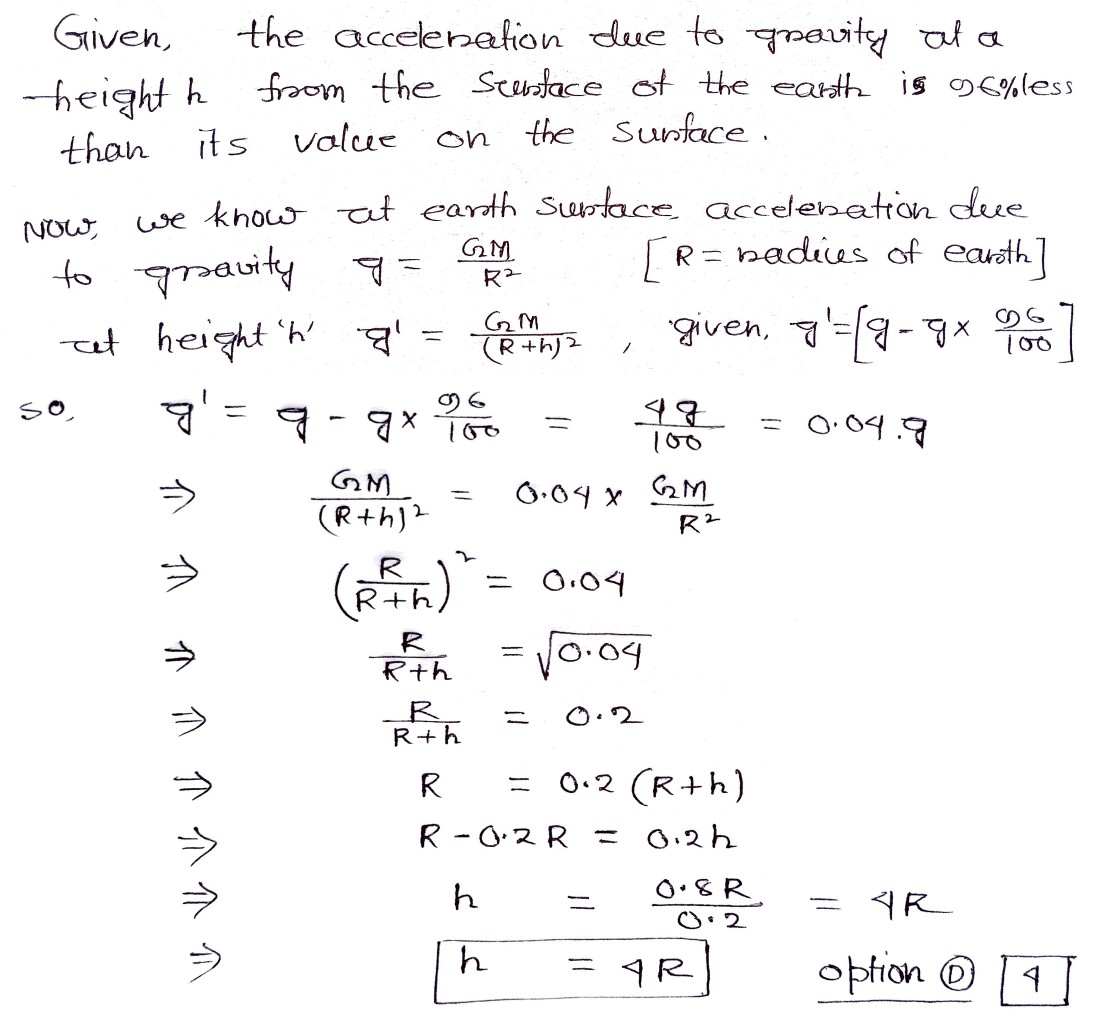 Given, the acceleration due to gravity at a
height h from the surface of the earth is 96% less
than its value on the surface.
Now, we know at earth surface acceleration due
to gravity g = GM/R² [R = radius of earth]
at height 'h' g' = GM/(R+h)², given, g' = [g - g × 96/100]
so, g' = g - g × 96/100 = 4g/100 = 0.04.g
⇒ GM/(R+h)² = 0.04 × GM/R²
⇒ (R/R+h)² = 0.04
⇒ R/R+h = √0.04
⇒ R/R+h = 0.2
⇒ R = 0.2 (R+h)
⇒ R - 0.2R = 0.2h
⇒ h = 0.8R/0.2 = 4R
⇒ h = 4R option Ⓓ 4